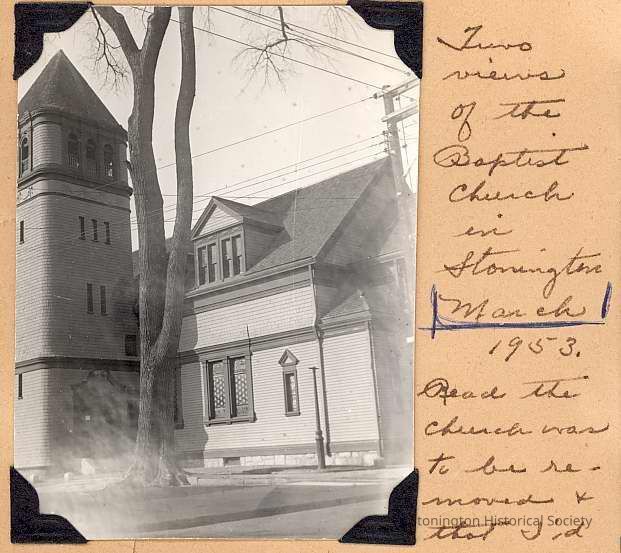 Two
views
of the
Baptist
Church
in
Stonington
March
1953.
Read the
church was
to be re-
moved &
that I'd
tonington Historical Society